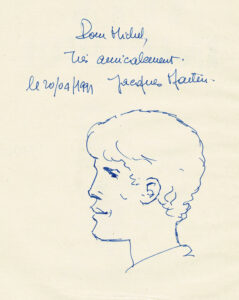 Pour Michel,
Très amicalement.
le 20/04/1991 Jacques Martin.